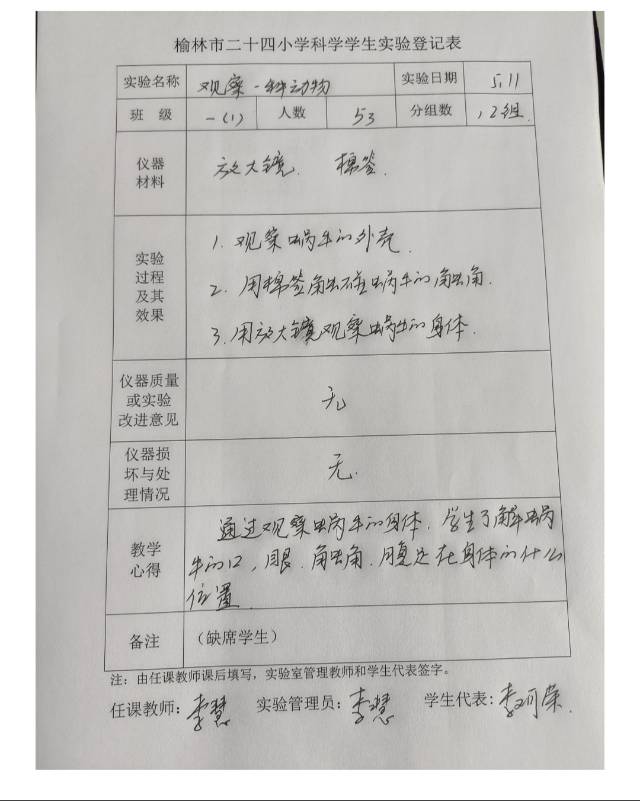 榆林市二十四小学科学学生实验登记表
实验名称 观察一种动物 实验日期 5.11
班 级 一(1) 人数 53 分组数 12组.
仪器
材料
放大镜. 棉签.
实验
过程
及其
效果
1. 观察蜗牛的外壳.
2. 用棉签触碰蜗牛的触角.
3. 用放大镜观察蜗牛的身体.
仪器质量
或实验
改进意见
无
仪器损
坏与处
理情况
无.
教学
心得
通过观察蜗牛的身体. 学生了解蜗
牛的口, 眼. 触角. 腹足在身体的什么
位置.
备注 (缺席学生)
注：由任课教师课后填写，实验室管理教师和学生代表签字。
任课教师：李慧 实验管理员：李慧 学生代表：李可荣.